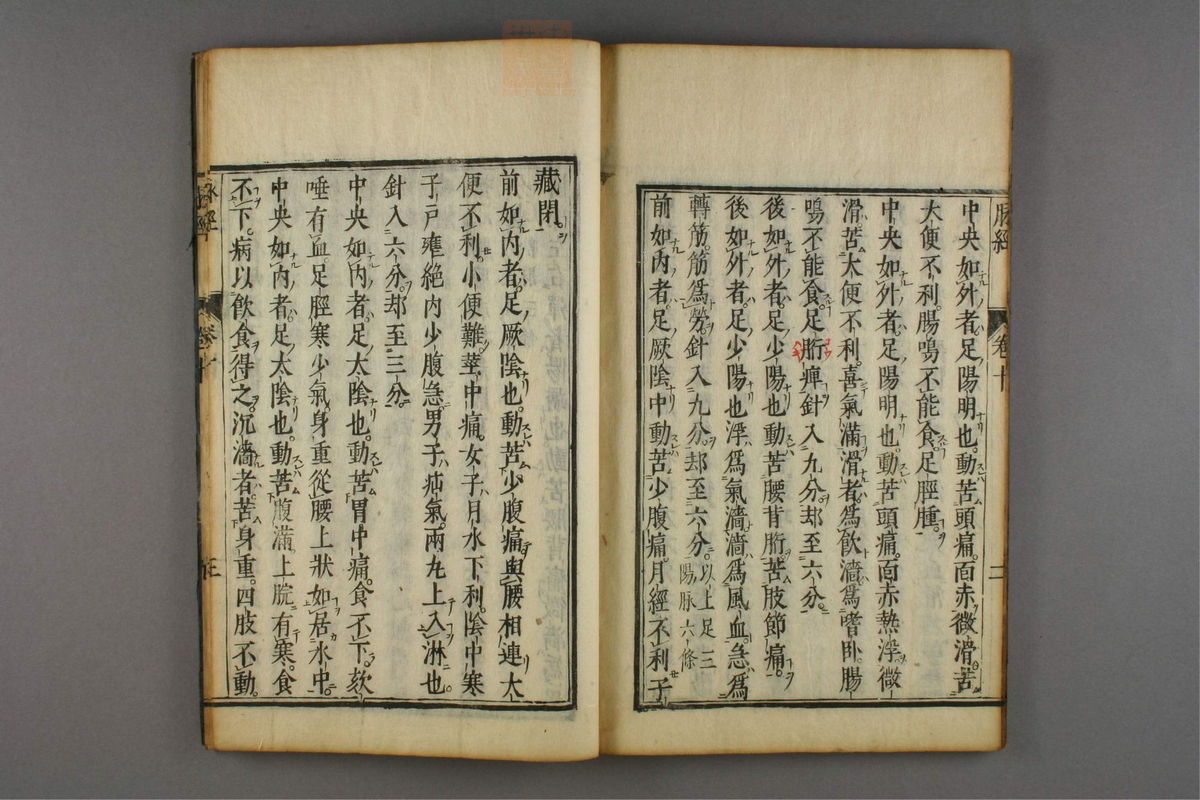 脉經 卷十 二
中央如外者足陽明也動苦頭痛面赤微滑苦
大便不利腸鳴不能食足脛腫
中央如外者足陽明也動苦頭痛面赤熱浮微
滑苦大便不利喜氣滿滑者爲飲濇爲嗜卧腸
鳴不能食足胻痺針入九分却至六分
後如外者足少陽也動苦腰背胻苦肢節痛
後如外者足少陽也浮爲氣濇濇爲風血急爲
轉筋筋爲勞針入九分却至六分以上足三陽脉六條
前如内者足厥陰中動苦少腹痛月經不利子
藏閉
前如内者足厥陰也動苦少腹痛與腰相連大
便不利小便難莖中痛女子月水下利陰中寒
子戸雍絶内少腹急男子疝氣兩丸上入淋也
針入六分却至三分
中央如内者足太陰也動苦胃中痛食不下欬
唾有血足脛寒少氣身重從腰上狀如居水中
中央如内者足太陰也動苦腹滿上脘有寒食
不下病以飲食得之沉濇者苦身重四肢不動
脉經 卷十